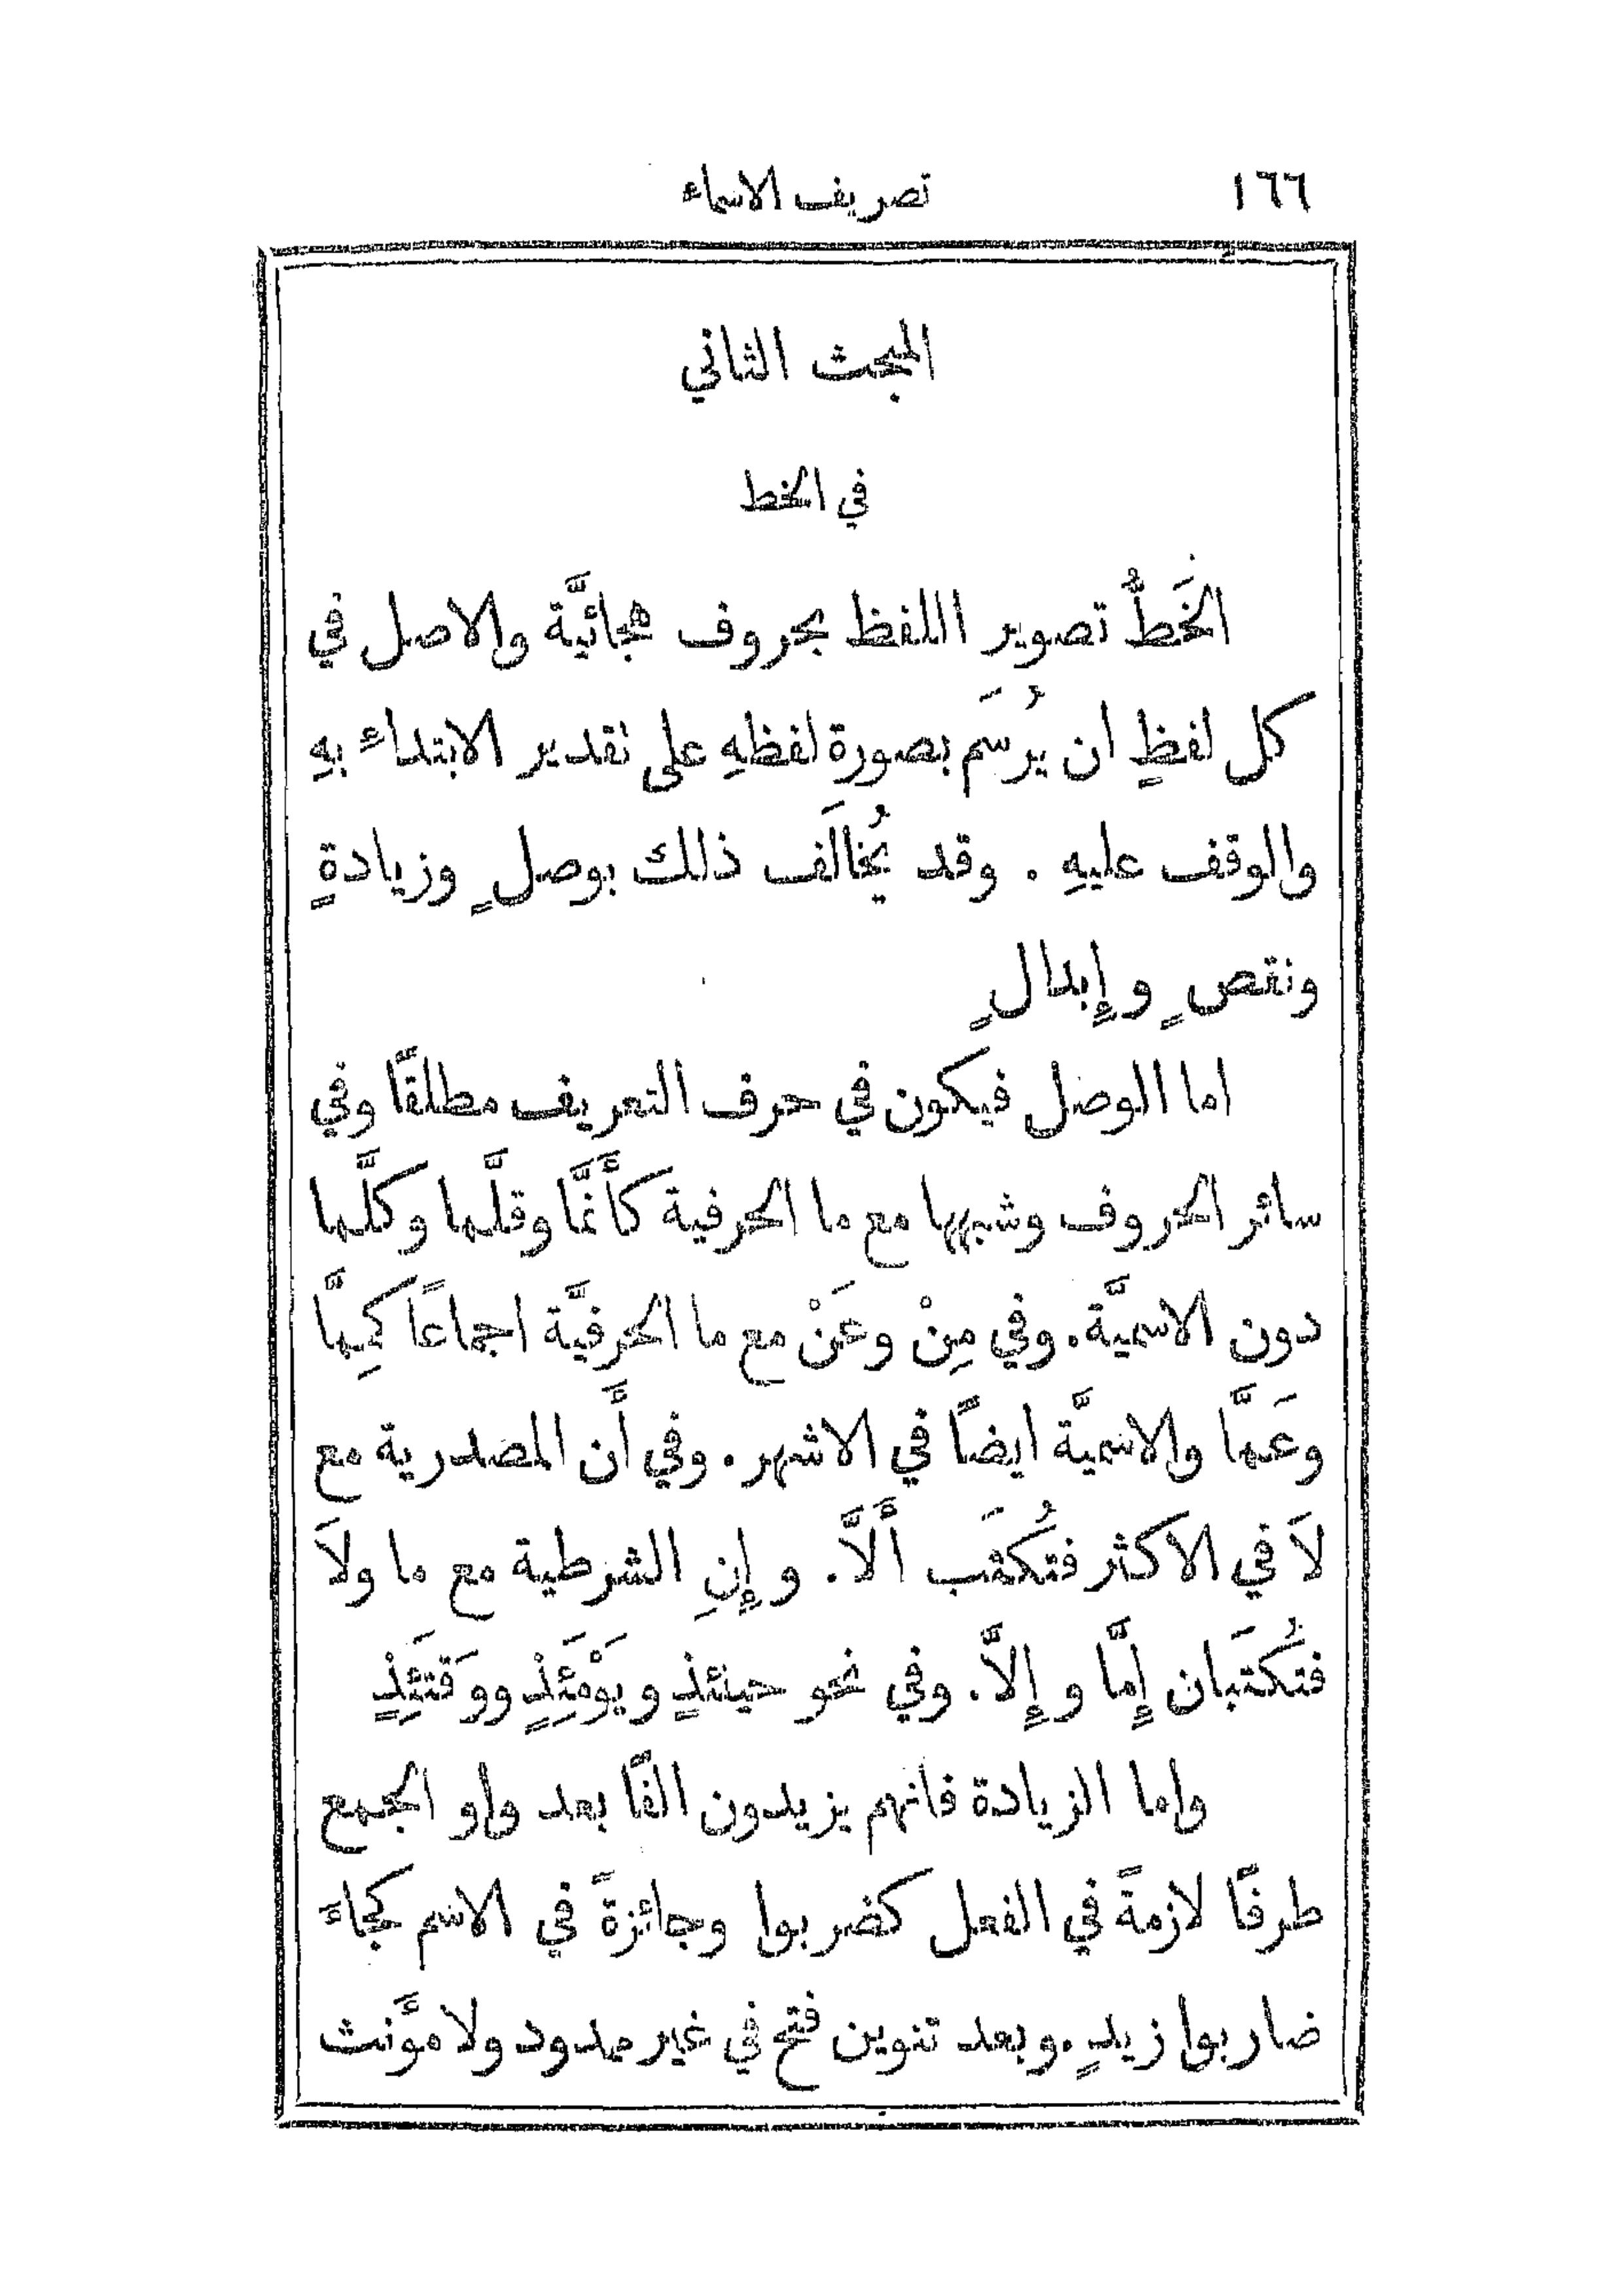 ١٦٦ تصريف الاسماء
المبحث الثاني
في الخط
الخَطُّ تصوير اللفظ بحروف هجائيَّة والاصل في
كل لفظٍ ان يُرسَم بصورة لفظهِ على تقدير الابتداء بهِ
والوقف عليهِ . وقد يُخالَف ذلك بوصلٍ وزيادةٍ
ونقصٍ وإِبدالٍ
اما الوصل فيكون في حرف التعريف مطلقًا وفي
سائر الحروف وشبهها مع ما الحرفية كأَنَّما وقلَّما وكلَّما
دون الاسميَّة. وفي مِنْ وعَنْ مع ما الحرفيَّة اجماعًا كمِمَّا
وعَمَّا والاسميَّة ايضًا في الاشهر. وفي أَن المصدرية مع
لاَ في الاكثر فتُكتَب أَلاَّ. وإِنِ الشرطية مع ما ولاَ
فتُكتَبان إِمَّا وإِلاَّ. وفي نحو حينئذٍ ويَوْمَئِذٍ ووَقتَئِذٍ
واما الزيادة فانهم يزيدون الفًا بعد واو الجمع
طرفًا لازمةً في الفعل كضربوا وجائزةً في الاسم كجاءَ
ضاربوا زيدٍ. وبعد تنوين فتح في غير ممدود ولا مؤَنث